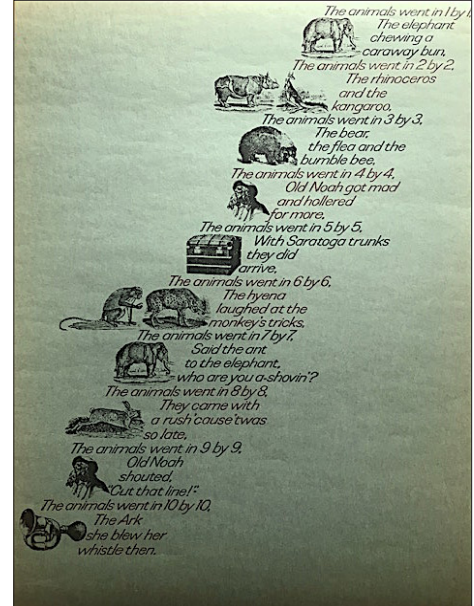 The animals went in 1 by 1.
The elephant
chewing a
caraway bun,
The animals went in 2 by 2,
The rhinoceros
and the
kangaroo.
The animals went in 3 by 3,
The bear,
the flea and the
bumble bee,
The animals went in 4 by 4,
Old Noah got mad
and hollered
for more,
The animals went in 5 by 5,
With Saratoga trunks
they did
arrive,
The animals went in 6 by 6,
The hyena
laughed at the
monkey's tricks,
The animals went in 7 by 7,
Said the ant
to the elephant,
who are you a-shovin'?
The animals went in 8 by 8,
They came with
a rush 'cause 'twas
so late,
The animals went in 9 by 9,
Old Noah
shouted,
"Cut that line!"
The animals went in 10 by 10,
The Ark
she blew her
whistle then.